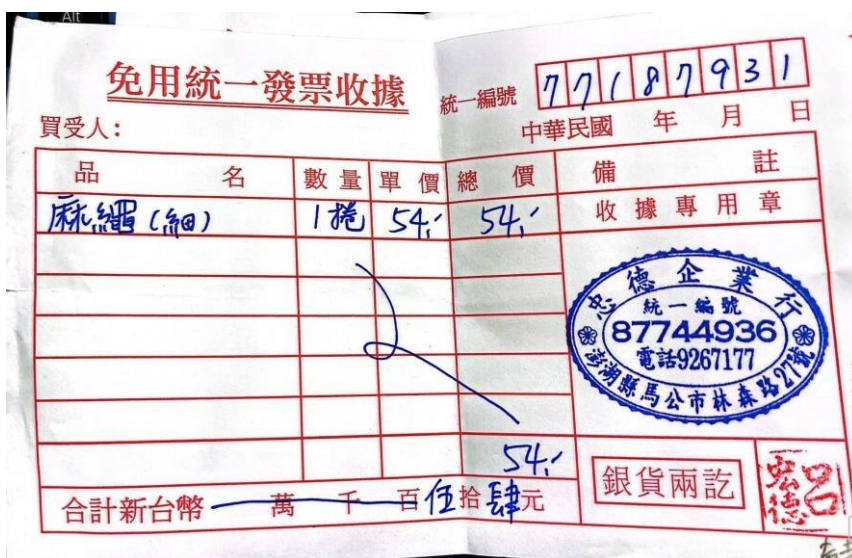 Alt
免用統一發票收據
統一編號 77187931
買受人：
中華民國 年 月 日
品名 數量 單價 總價 備註
麻繩(細) 1捲 54.- 54.- 收據專用章
忠德企業行
統一編號
87744936
電話9267177
澎湖縣馬公市林森路27號
54.-
合計新台幣 萬 千 百伍拾肆元
銀貨兩訖
呂宏德